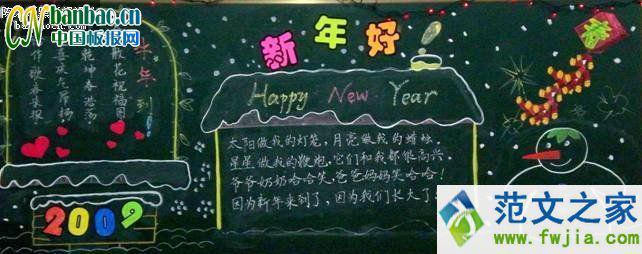 CN banbac.cn
中国板报网
新年好
Happy New Year
太阳做我的灯笼,月亮做我的蜡烛
星星做我的鞭炮,它们和我都很高兴
爷爷奶奶哈哈笑,爸爸妈妈笑哈哈!
因为新年来到了,因为我们长大了.
牛年到
散花祝福图
乾坤春浩荡
2009
春
范文之家
www.fwjia.com